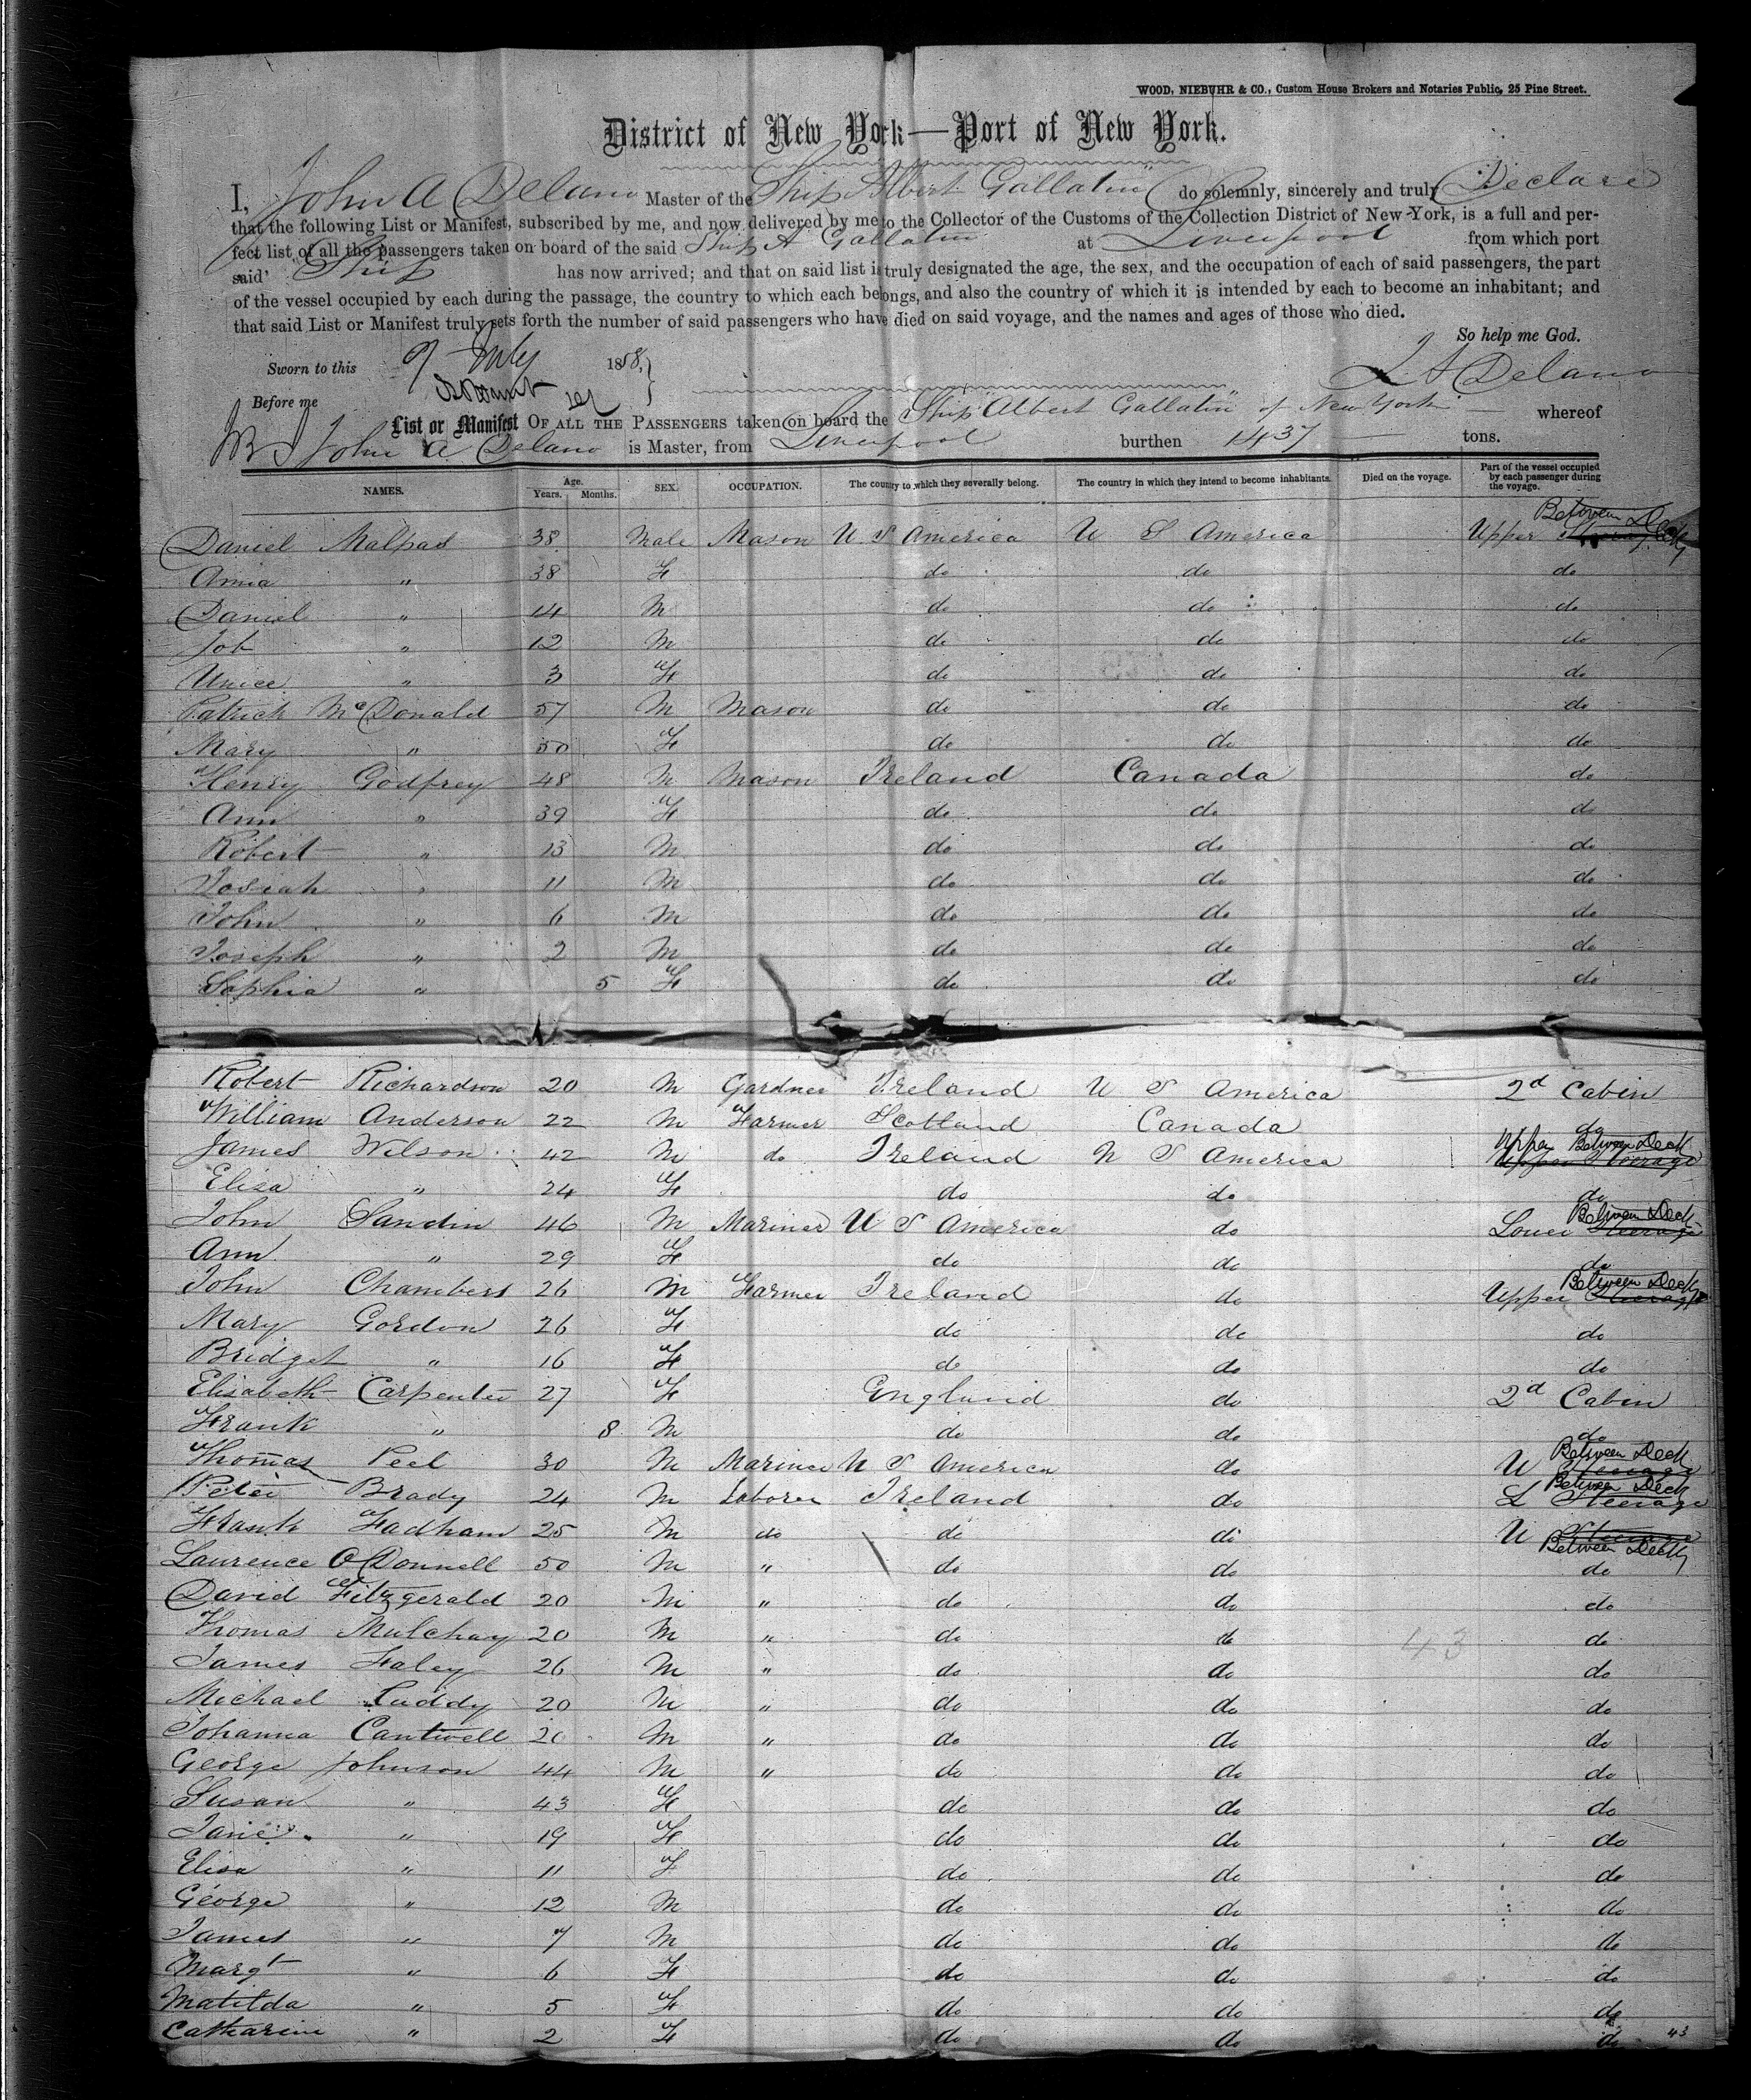 WOOD, NIEBUHR & CO., Custom House Brokers and Notaries Public, 25 Pine Street.
District of New York—Port of New York.
I, John A Delano Master of the Ship "Albert Gallatin" do solemnly, sincerely and truly Declare
that the following List or Manifest, subscribed by me, and now delivered by me to the Collector of the Customs of the Collection District of New-York, is a full and per-
fect list of all the passengers taken on board of the said Ship A Gallatin at Liverpool from which port
said Ship has now arrived; and that on said list is truly designated the age, the sex, and the occupation of each of said passengers, the part
of the vessel occupied by each during the passage, the country to which each belongs, and also the country of which it is intended by each to become an inhabitant; and
that said List or Manifest truly sets forth the number of said passengers who have died on said voyage, and the names and ages of those who died.
So help me God.
Sworn to this 9 July 1858,
J A Delano
Before me
List or Manifest OF ALL THE PASSENGERS taken on board the Ship "Albert Gallatin" of New York whereof
John A Delano is Master, from Liverpool burthen 1437 tons.
NAMES. Age. Years. Months. SEX. OCCUPATION. The country to which they severally belong. The country in which they intend to become inhabitants. Died on the voyage. Part of the vessel occupied by each passenger during the voyage.
Daniel Malpas 38 Male Mason U S America U S America Upper Between Deck
Anna " 38 F do do do
Daniel " 14 M do do do
Job " 12 M do do do
Unice " 3 F do do do
Patrick McDonald 57 M Mason do do do
Mary " 50 F do do do
Henry Godfrey 48 M Mason Ireland Canada do
Ann " 39 F do do do
Robert " 13 M do do do
Josiah " 11 M do do do
John " 6 M do do do
Joseph " 2 M do do do
Sophia " 5 F do do do
Robert Richardson 20 M Gardner Ireland U S America 2d Cabin
William Anderson 22 M Farmer Scotland Canada do
James Wilson 42 M do Ireland U S America Upper Between Deck Upper Steerage
Eliza " 24 F do do do
John Sandin 46 M Mariner U S America do Lower Between Deck Steerage
Ann " 29 F do do do
John Chambers 26 M Farmer Ireland do Upper Between Deck Steerage
Mary Gordon 26 F do do do
Bridget " 16 F do do do
Elisabeth Carpenter 27 F England do 2d Cabin
Frank " 8 M do do do
Thomas Peel 30 M Mariner U S America do U Between Deck Steerage
Peter Brady 24 M Laborer Ireland do L Between Deck Steerage
Frank Fadham 25 M do do do U Steerage Between Deck
Laurence O'Donnell 50 M " do do do
David Fitzgerald 20 M " do do do
Thomas Mulchay 20 M " do do do
43
James Faley 26 M " do do do
Michael Cuddy 20 M " do do do
Johanna Cantwell 20 M " do do do
George Johnson 44 M " do do do
Susan " 43 F do do do
Jane " 19 F do do do
Elisa " 11 F do do do
George " 12 M do do do
James " 7 M do do do
Margt " 6 F do do do
Matilda " 5 F do do do
Catharine " 2 F do do do 43